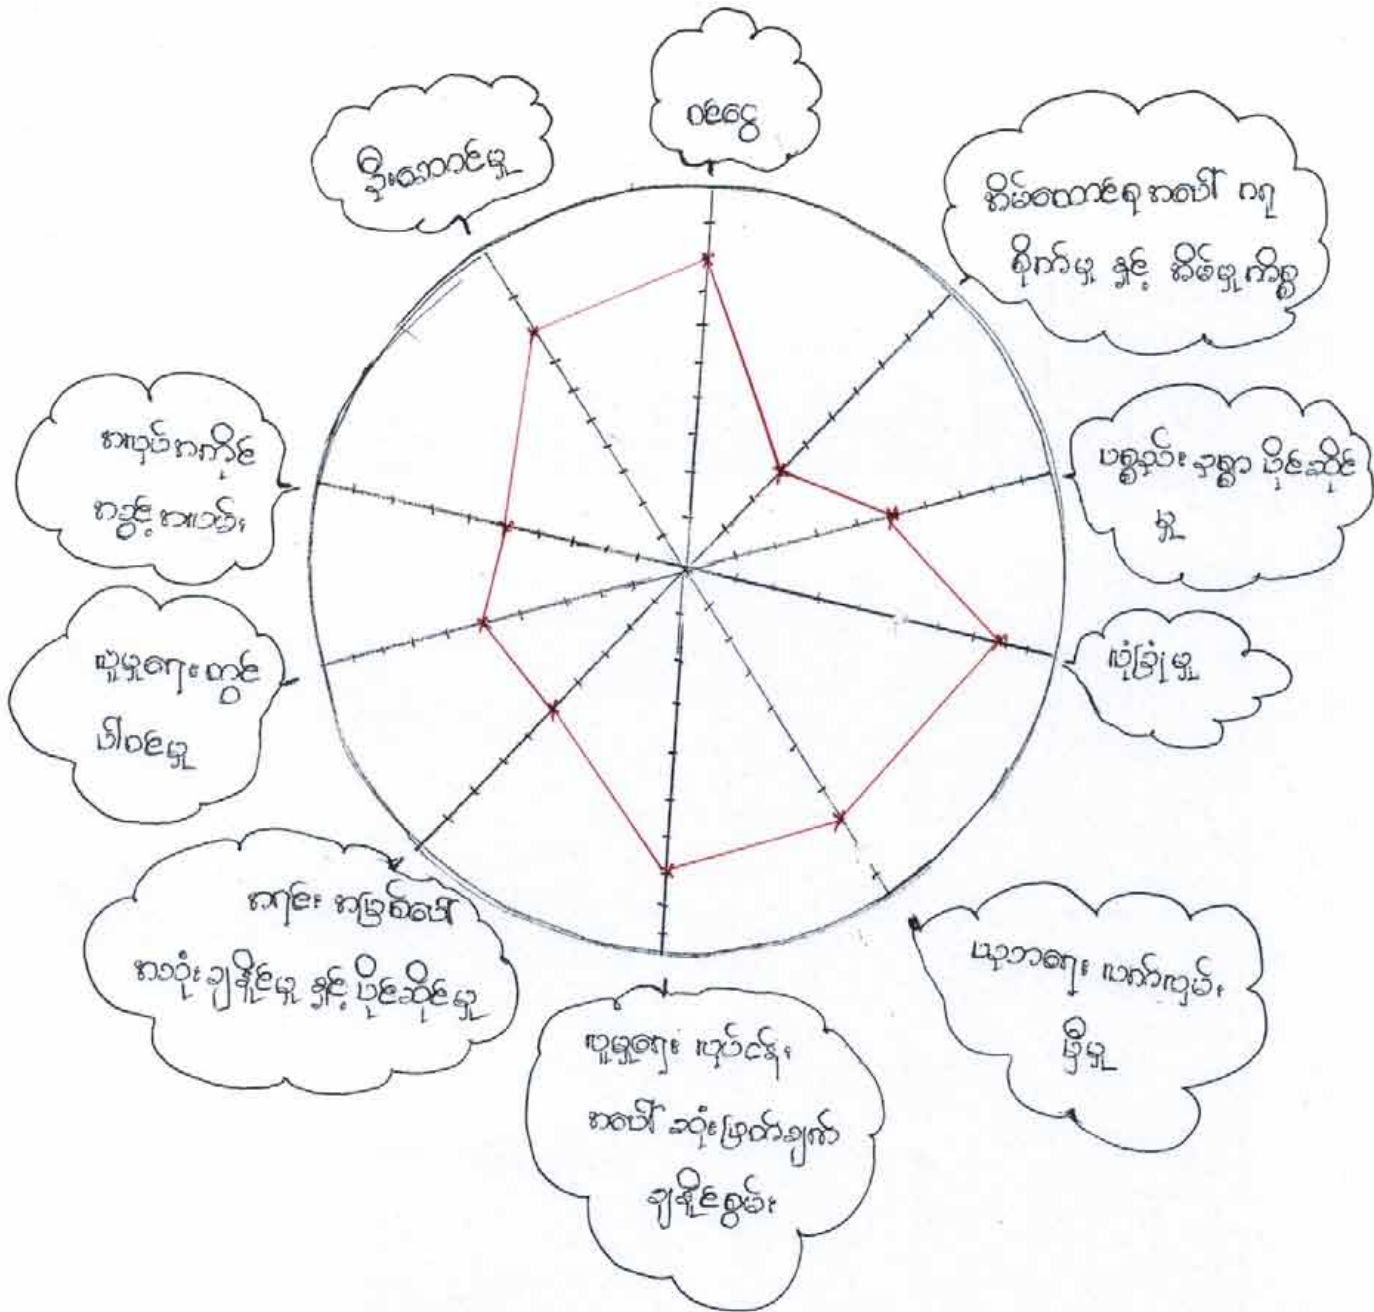 ဝင်ငွေ
အိမ်ထောင်ရေအပေါ် ဂရု
စိုက်မှု နှင့် အိမ်မှုကိစ္စ
ပစ္စည်း ဥစ္စာ ပိုင်ဆိုင်
မှု
လုံခြုံမှု
ပညာရေး လက်လှမ်း
မှီမှု
လူမှုရေး လုပ်ငန်း
အပေါ် ဆုံးဖြတ်ချက်
ချနိုင်စွမ်း
အရင်း အမြစ်ပေါ်
အသုံးချနိုင်မှု နှင့် ပိုင်ဆိုင်မှု
လူမှုရေးတွင်
ပါဝင်မှု
အလုပ်အကိုင်
အခွင့်အလမ်း
ဦးဆောင်မှု